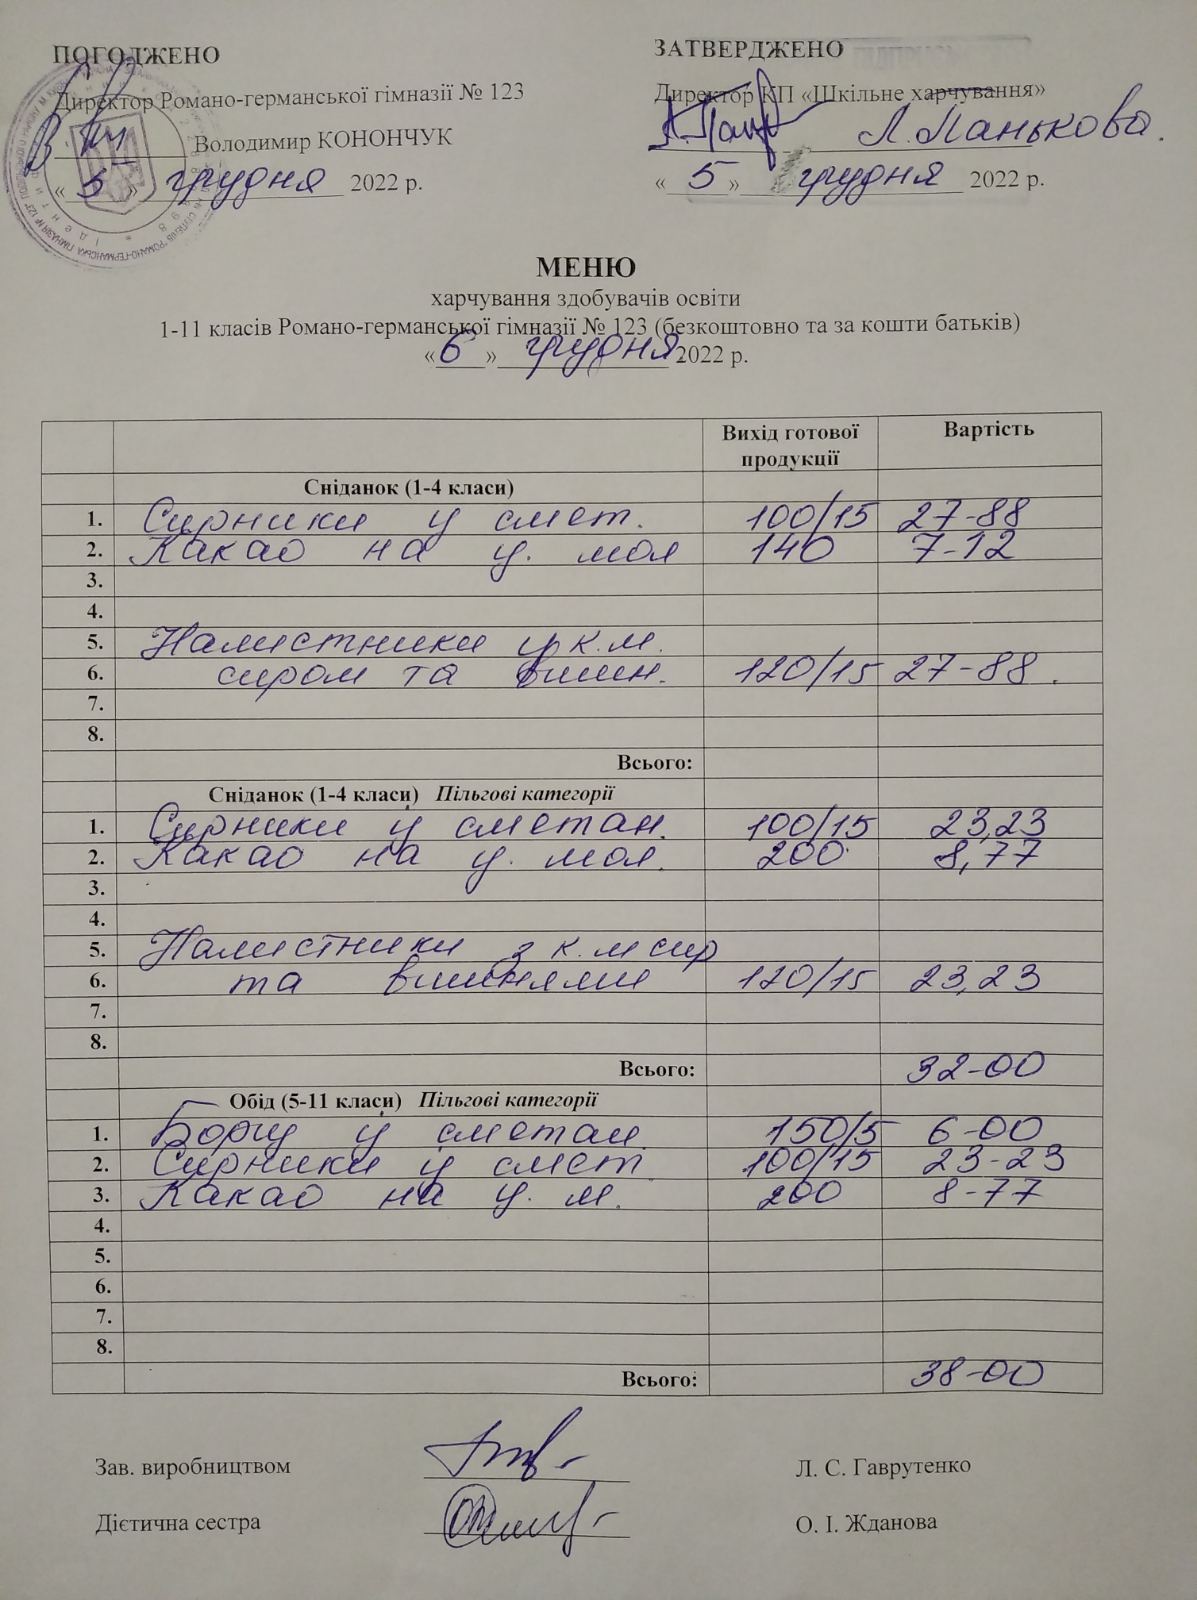 ПОГОДЖЕНО
Директор Романо-германської гімназії № 123
Володимир КОНОНЧУК
« 5 » грудня 2022 р.
ЗАТВЕРДЖЕНО
Директор КП «Шкільне харчування»
Л. Панькова.
« 5 » грудня 2022 р.
МЕНЮ
харчування здобувачів освіти
1-11 класів Романо-германської гімназії № 123 (безкоштовно та за кошти батьків)
« 6 » грудня 2022 р.
Вихід готової продукції Вартість
Сніданок (1-4 класи)
1. Сирники у смет. 100/15 27-88
2. Какао на у. мол 140 7-12
3.
4.
5. Налистники у к.м.
6. сиром та вишн. 120/15 27-88.
7.
8.
Всього:
Сніданок (1-4 класи) Пільгові категорії
1. Сирники у сметан. 100/15 23,23
2. Какао на у. мол. 200 8,77
3.
4.
5. Налистники з к.м сир
6. та вишнями 120/15 23,23
7.
8.
Всього: 32-00
Обід (5-11 класи) Пільгові категорії
1. Борщ у сметан 150/5 6-00
2. Сирники у смет 100/15 23-23
3. Какао на у. м. 200 8-77
4.
5.
6.
7.
8.
Всього: 38-00
Зав. виробництвом Л. С. Гаврутенко
Дієтична сестра О. І. Жданова